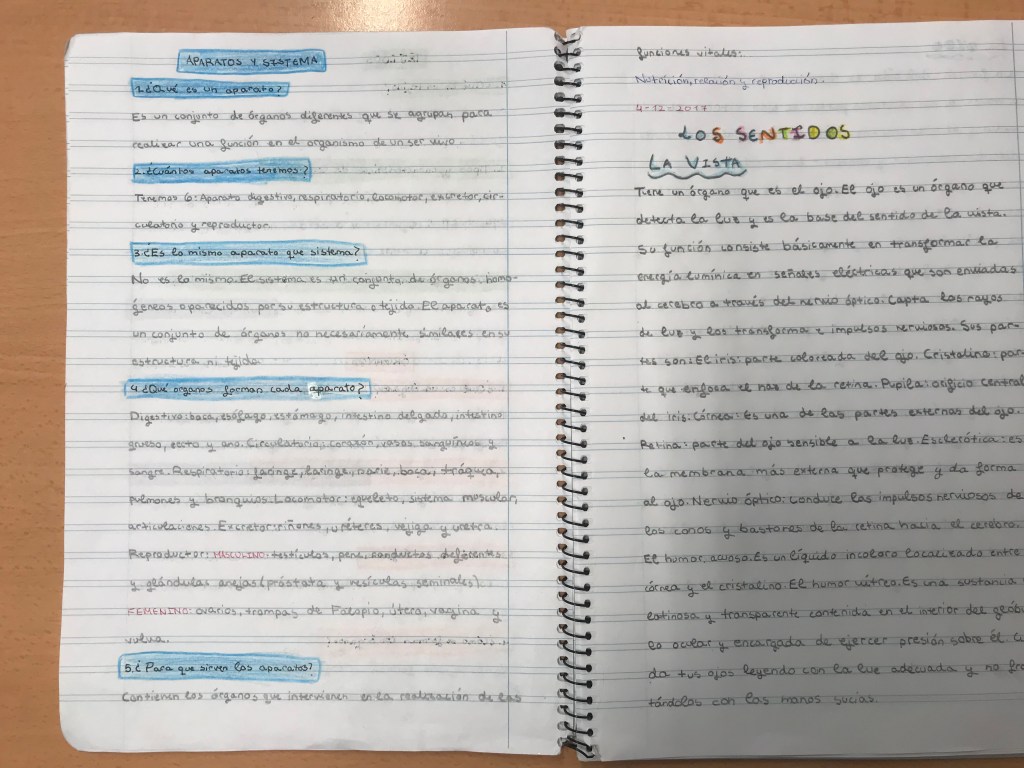 APARATOS Y SISTEMA
1.¿Qué es un aparato?
Es un conjunto de órganos diferentes que se agrupan para
realizar una función en el organismo de un ser vivo.
2.¿Cuántos aparatos tenemos?
Tenemos 6: Aparato digestivo, respiratorio, locomotor, excretor, cir-
culatorio y reproductor.
3.¿Es lo mismo aparato que sistema?
No es lo mismo. El sistema es un conjunto de órganos homo-
géneos o parecidos por su estructura o tejido. El aparato es
un conjunto de órganos no necesariamente similares en su
estructura ni tejido.
4.¿Qué organos forman cada aparato?
Digestivo: boca, esófago, estómago, intestino delgado, intestino
grueso, recto y ano. Circulatorio: corazón, vasos sanguíneos y
sangre. Respiratorio: faringe, laringe, nariz, boca, tráquea,
pulmones y branquios. Locomotor: equeleto, sistema muscular,
articulaciones. Excretor: riñones, uréteres, vejiga y uretra.
Reproductor: MASCULINO: testículos, pene, conductos deferentes
y glándulas anejas (próstata y vesículas seminales).
FEMENINO: ovarios, trompas de Falopio, útero, vagina y
vulva.
5.¿Para que sirven los aparatos?
Contienen los órganos que intervienen en la realización de las
funciones vitales:
Nutrición, relación y reproducción.
4-12-2017
LOS SENTIDOS
LA VISTA
Tiene un órgano que es el ojo. El ojo es un órgano que
detecta la luz y es la base del sentido de la vista.
Su función consiste básicamente en transformar la
energía lumínica en señales eléctricas que son enviadas
al cerebro a través del nervio óptico. Capta los rayos
de luz y los transforma e impulsos nerviosos. Sus par-
tes son: El iris: parte coloreada del ojo. Cristalino: par
te que enfosa el haz de la retina. Pupila: orificio central
del iris. Córnea: Es una de las partes externas del ojo.
Retina: parte del ojo sensible a la luz. Esclerótica: es
la membrana más externa que protege y da forma
al ojo. Nervio óptico: Conduce los impulsos nerviosos de
los conos y bastores de la retina hacia el cerebro.
El humor acuoso. Es un líquido incoloro localizado entre
córnea y el cristalino. El humor vítreo. Es una sustancia
latinosa y transparente contenida en el interior del glóbu
lo ocular y encargada de ejercer presión sobre él. Cu
da tus ojos leyendo con la luz adecuada y no fro
tándolos con las manos sucias.